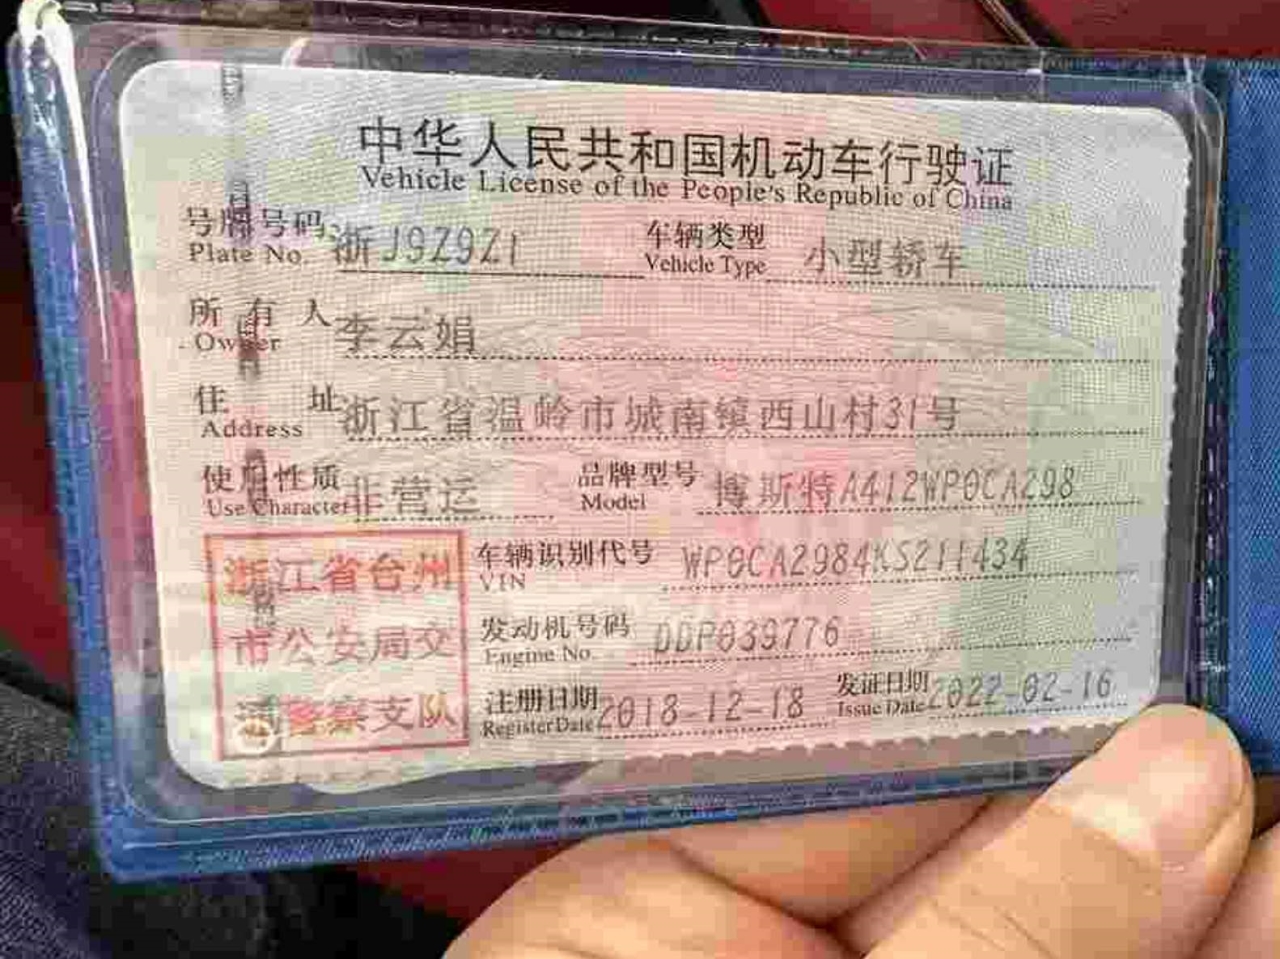 中华人民共和国机动车行驶证
Vehicle License of the People's Republic of China
号牌号码 浙J9Z9Z1 车辆类型 小型轿车
Plate No. Vehicle Type
所有人 李云娟
Owner
住址 浙江省温岭市城南镇西山村31号
Address
使用性质 非营运 品牌型号 博斯特A412WP0CA298
Use Character Model
浙江省台州
市公安局交
通警察支队
车辆识别代号 WP0CA2984KS211434
VIN
发动机号码 DDP039776
Engine No.
注册日期 2018-12-18 发证日期 2022-02-16
Register Date Issue Date